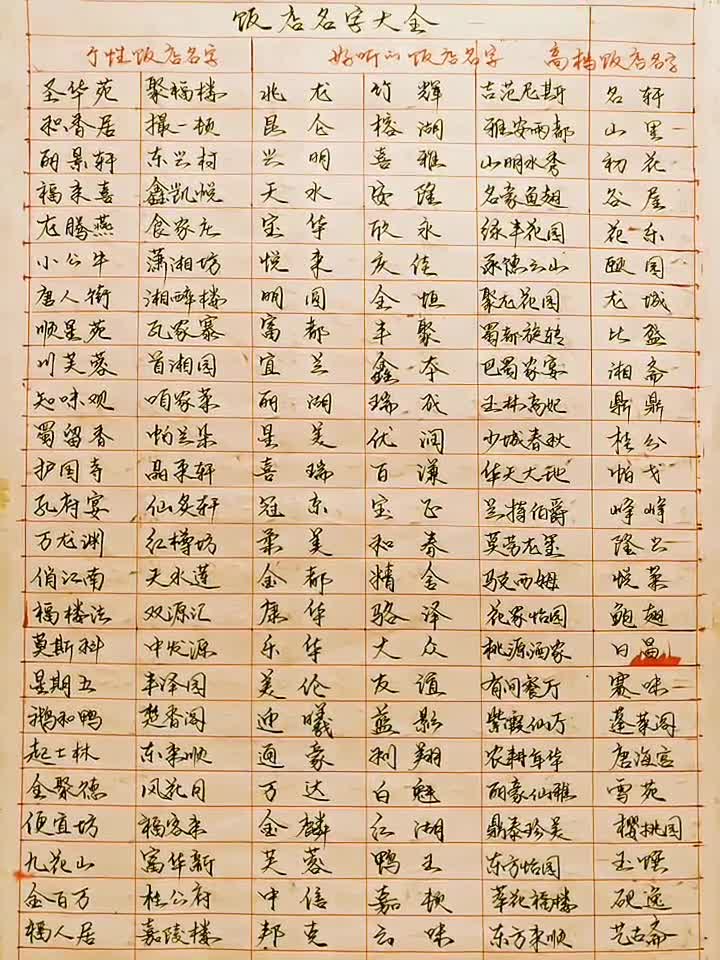 饭店名字大全
个性饭店名字 好听的饭店名字 高档饭店名字
圣华苑 聚福楼 兆龙 竹辉 吉范尼斯 名轩
和香居 撮一顿 昆仑 榕湖 雅安两都 山里
丽景轩 东兴村 兴明 喜雅 山明水秀 初花
福来喜 鑫凯悦 天水 安隆 名豪鱼翅 谷屋
龙腾燕 食家庄 宝华 欣永 绿丰花园 花东
小公牛 潇湘坊 悦来 友佳 顺德云山 颐园
唐人街 湘醉楼 明圆 金恒 聚龙花园 龙城
顺星苑 瓦家寨 富都 丰聚 蜀都旋转 比盛
川芙蓉 首湘园 宜兰 鑫本 巴蜀家宴 湘斋
知味观 咱家菜 丽湖 瑞成 玉林高妃 鼎鼎
蜀留香 帕兰朵 星美 优润 少城春秋 桂公
护国寺 晶来轩 喜瑞 百谦 华天大地 帕戈
孔府宴 仙炙轩 冠东 宝正 兰特伯爵 峰峰
万龙洲 红樽坊 莱美 和春 莫劳龙玺 隆上
俏江南 天水莲 金都 精金 马克西姆 悦莱
福楼法 双源汇 康华 骆泽 花家怡园 鲍翅
莫斯科 中发源 乐华 大众 桃源酒家 日昌
星期五 丰泽园 美伦 友谊 有间餐厅 赛味
鹅和鸭 楚香阁 迎曦 蓝影 紫霞仙厅 蓬莱阁
起士林 东来顺 通豪 利翔 农耕年华 唐海宫
全聚德 风花日 万达 白魁 丽豪仙雅 雪苑
便宜坊 福客来 金麟 江湖 鼎泰珍美 樱桃园
九花山 富华新 芙蓉 鸭王 东方怡园 玉堰
金百万 桂公府 中信 嘉顿 萃花福楼 砚逸
福人居 嘉陵楼 邦克 云味 东方来顺 艺古斋